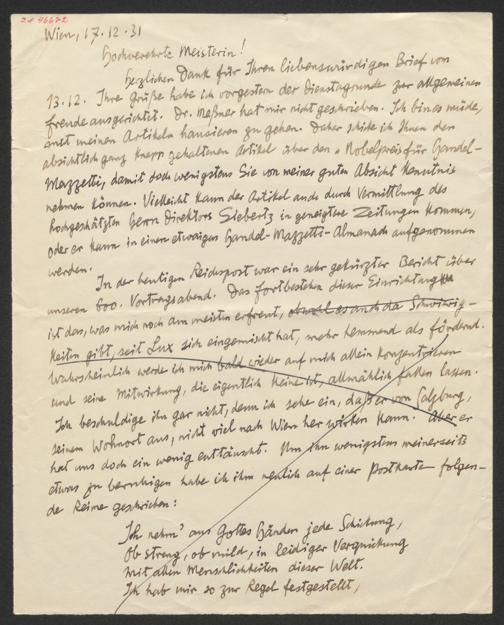 24 96672
Wien, 17.12.31
Hochverehrte Meisterin!
Herzlichen Dank für Ihren liebenswürdigen Brief vom
13.12. Ihre Grüße habe ich vorgestern der Dienstagrunde zur allgemeinen
Freude ausgerichtet. Dr. Meßner hat mir nicht geschrieben. Ich bin es müde,
mit meinen Artikeln hausieren zu gehen. Daher schicke ich Ihnen den
absichtlich ganz knapp gehaltenen Artikel über den "Nobelpreis für Handel-
Mazzetti, damit doch wenigstens Sie von meiner guten Absicht Kenntnis
nehmen können. Vielleicht kann der Artikel auch durch Vermittlung des
hochgeschätzten Herrn Direktors Siebertz in geneigtere Zeitungen kommen,
oder er kann in einen etwaigen Handel-Mazzetti-Almanach aufgenommen
werden.
In der heutigen Reichspost war ein sehr gekürzter Bericht über
unseren 600. Vortragsabend. Das Fortbestehen dieser Einrichtung
ist das, was mich noch am meisten erfreut, obwohl es auch da Schwierig-
keiten gibt, seit Lux sich eingemischt hat, mehr hemmend als fördernd.
Wahrscheinlich werde ich mich bald wieder auf mich allein konzentrieren
und seine Mitwirkung, die eigentlich keine ist, allmählich fallen lassen.
Ich beschuldige ihn gar nicht, denn ich sehe ein, daß er von Salzburg,
seinem Wohnort aus, nicht viel nach Wien her wirken kann. Aber er
hat uns doch ein wenig enttäuscht. Um ihn wenigstens meinerseits
etwas zu beruhigen habe ich ihm neulich auf einer Postkarte folgen-
de Reime geschrieben:
Ich nehm' aus Gottes Händen jede Schickung,
Ob streng, ob mild, in leidiger Verquickung
Mit allen Menschlichkeiten dieser Welt.
Ich hab mir so zur Regel festgestellt,